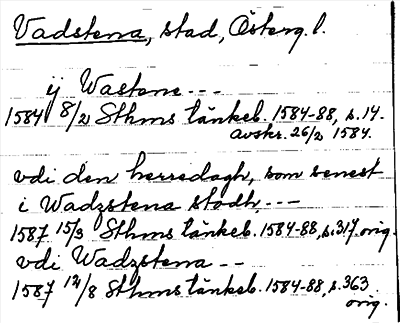 Vadstena, stad, Österg. l.
ij Wastene ---
1584 8/2 Sthms tänkeb. 1584-88, s. 14.
avskr. 26/2 1584.
vdi den herredagh, som senest
i Wadzstena stodh, ---
1587 15/3 Sthms tänkeb. 1584-88, s. 317. orig.
vdi Wadzstena --
1587 12/8 Sthms tänkeb. 1584-88, s. 363
orig.